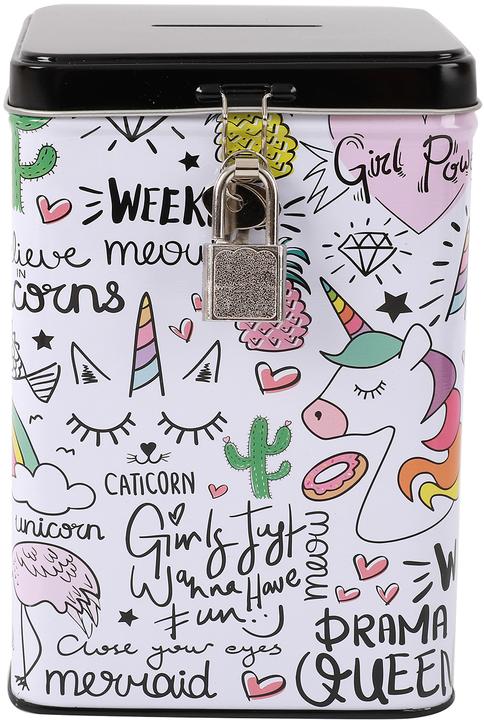 Girl Pow
WEEK
lieve meow
IN
corns
CATICORN
unicorn
Girls Just
Wanna Have
Fun
meow
Close your eyes
mermaid
W
DRAMA
QUEEN